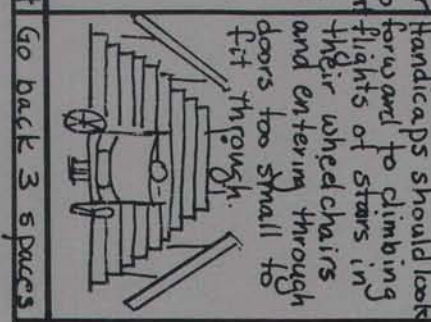 Handicaps should look
forward to climbing
flights of stairs in
their wheelchairs
and entering through
doors too small to
fit through.
Go back 3 spaces